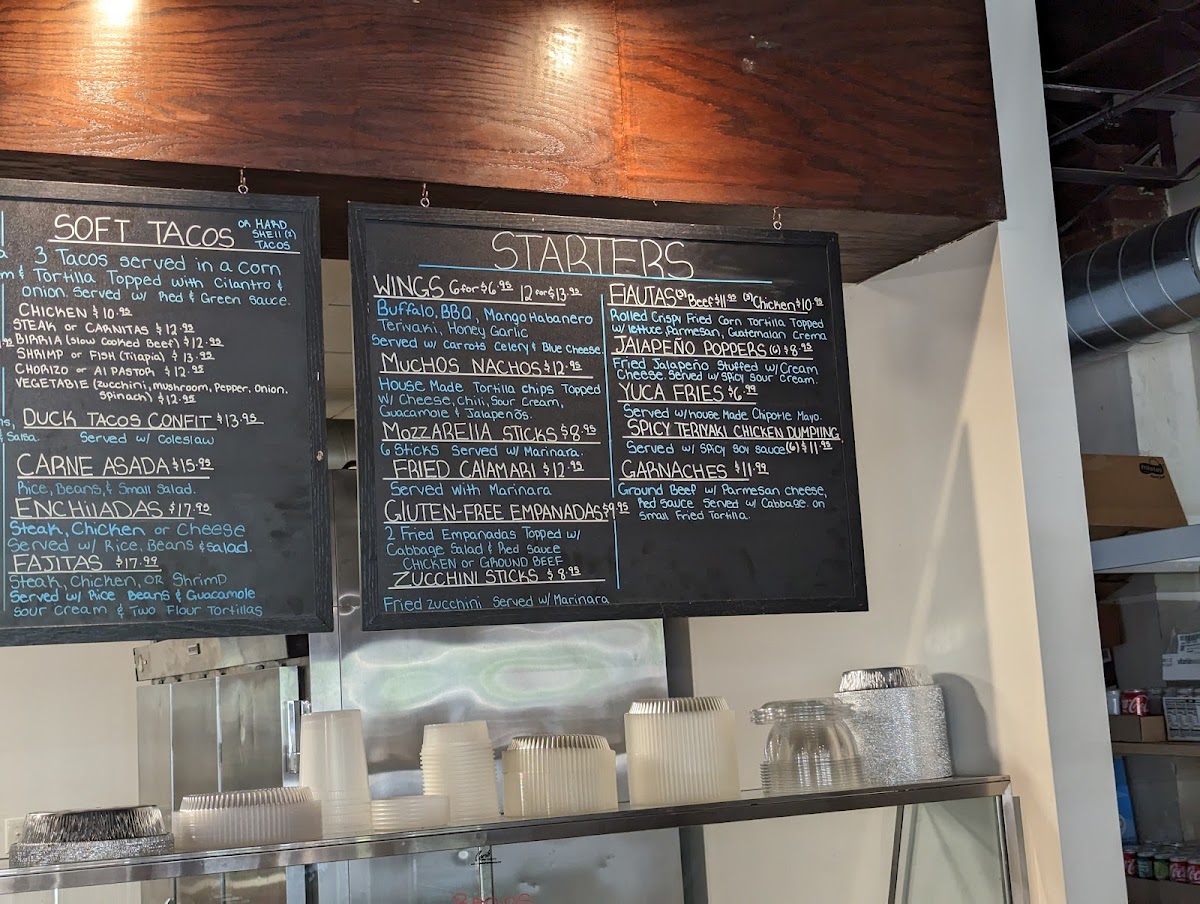 SOFT TACOS
OR HARD
SHEll (2)
TACOS
3 Tacos served in a corn
& Tortilla Topped with Cilantro &
onion. Served w/ Red & Green sauce.
CHICKEN $10.95
STEAK or CARNITAS $12.95
BIRRIA (Slow Cooked Beef) $12.95
SHRIMP or FISH (Tilapia) $13.95
CHORIZO or Al PASTOR $12.95
VEGETABlE (zucchini, mushroom, Pepper, Onion.
spinach) $12.95
DUCK TACOS CONFIT $13.95
Served w/ Coleslaw
& Salsa.
CARNE ASADA $15.95
Rice, Beans, & Small Salad.
ENCHilADAS $17.95
Steak, Chicken or Cheese
Served w/ Rice, Beans & salad.
FAJITAS $17.99
Steak, Chicken, OR Shrimp
Served w/ Rice Beans & Guacamole
Sour Cream & Two Flour Tortillas
STARTERS
WINGS 6 for $6.95 12 for $13.95
Buffalo, BBQ, Mango Habanero
Teriyaki, Honey Garlic
Served w/ Carrots Celery & Blue Cheese
MucHOS NACHOS $12.95
House Made Tortilla chips Topped
w/ Cheese, Chili, Sour Cream,
Guacamole & Jalapeños.
MozzAREllA STICKS $8.95
6 Sticks Served w/ Marinara.
FRIED CAlAMARI $12.95
Served with Marinara
GlUTEN-FREE EMPANADAS $9.95
2 Fried Empanadas Topped w/
Cabbage Salad & Red sauce
CHICKEN or GROUND BEEF
ZUCCHINI STICKS $8.95
Fried zucchini Served w/ Marinara
FlAUTAS (3) Beef $11.95 (3) Chicken $10.95
Rolled Crispy Fried Corn Tortilla Topped
w/ lettuce, Parmesan, Guatemalan Crema
JAlAPEÑO POPPERS (6) $8.95
Fried Jalapeño Stuffed w/ Cream
Cheese. Served w/ Spicy Sour Cream.
YUCA FRIES $6.99
Served w/ house Made Chipotle Mayo.
SPICY TERIYAKI CHICKEN DUMPlING
Served w/ Spicy Soy sauce (6) $11.95
GARNACHES $11.99
Ground Beef w/ Parmesan cheese,
Red Sauce Served w/ Cabbage. on
Small Fried Tortilla.